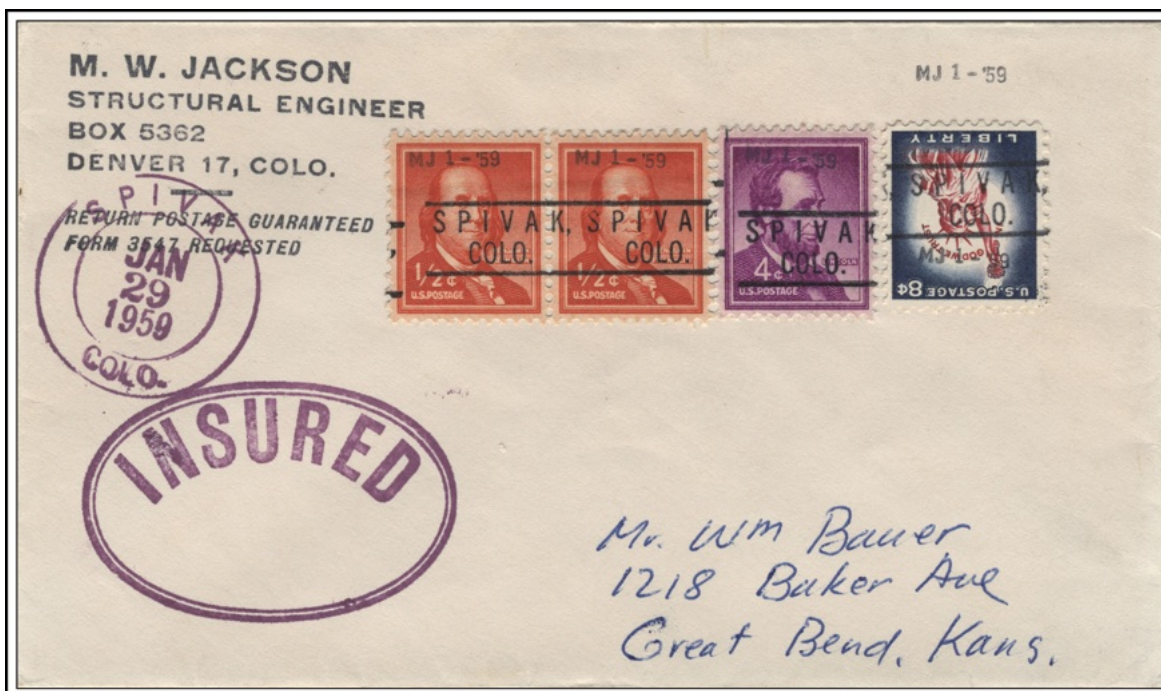 M. W. JACKSON
STRUCTURAL ENGINEER
BOX 5362
DENVER 17, COLO.
RETURN POSTAGE GUARANTEED
FORM 3547 REQUESTED
MJ 1-'59
MJ 1-'59
MJ 1-'59
MJ 1-'59
SPIVAK, SPIVAK
COLO. COLO.
1/2¢ 1/2¢
U.S. POSTAGE U.S. POSTAGE
SPIVAK
COLO.
4¢
U.S. POSTAGE
LIBERTY
SPIVAK,
COLO.
IN GOD WE TRUST
MJ 1-'59
U.S. POSTAGE 8¢
SPIVAK
JAN
29
1959
COLO.
INSURED
Mr. Wm Bauer
1218 Baker Ave
Great Bend, Kans.